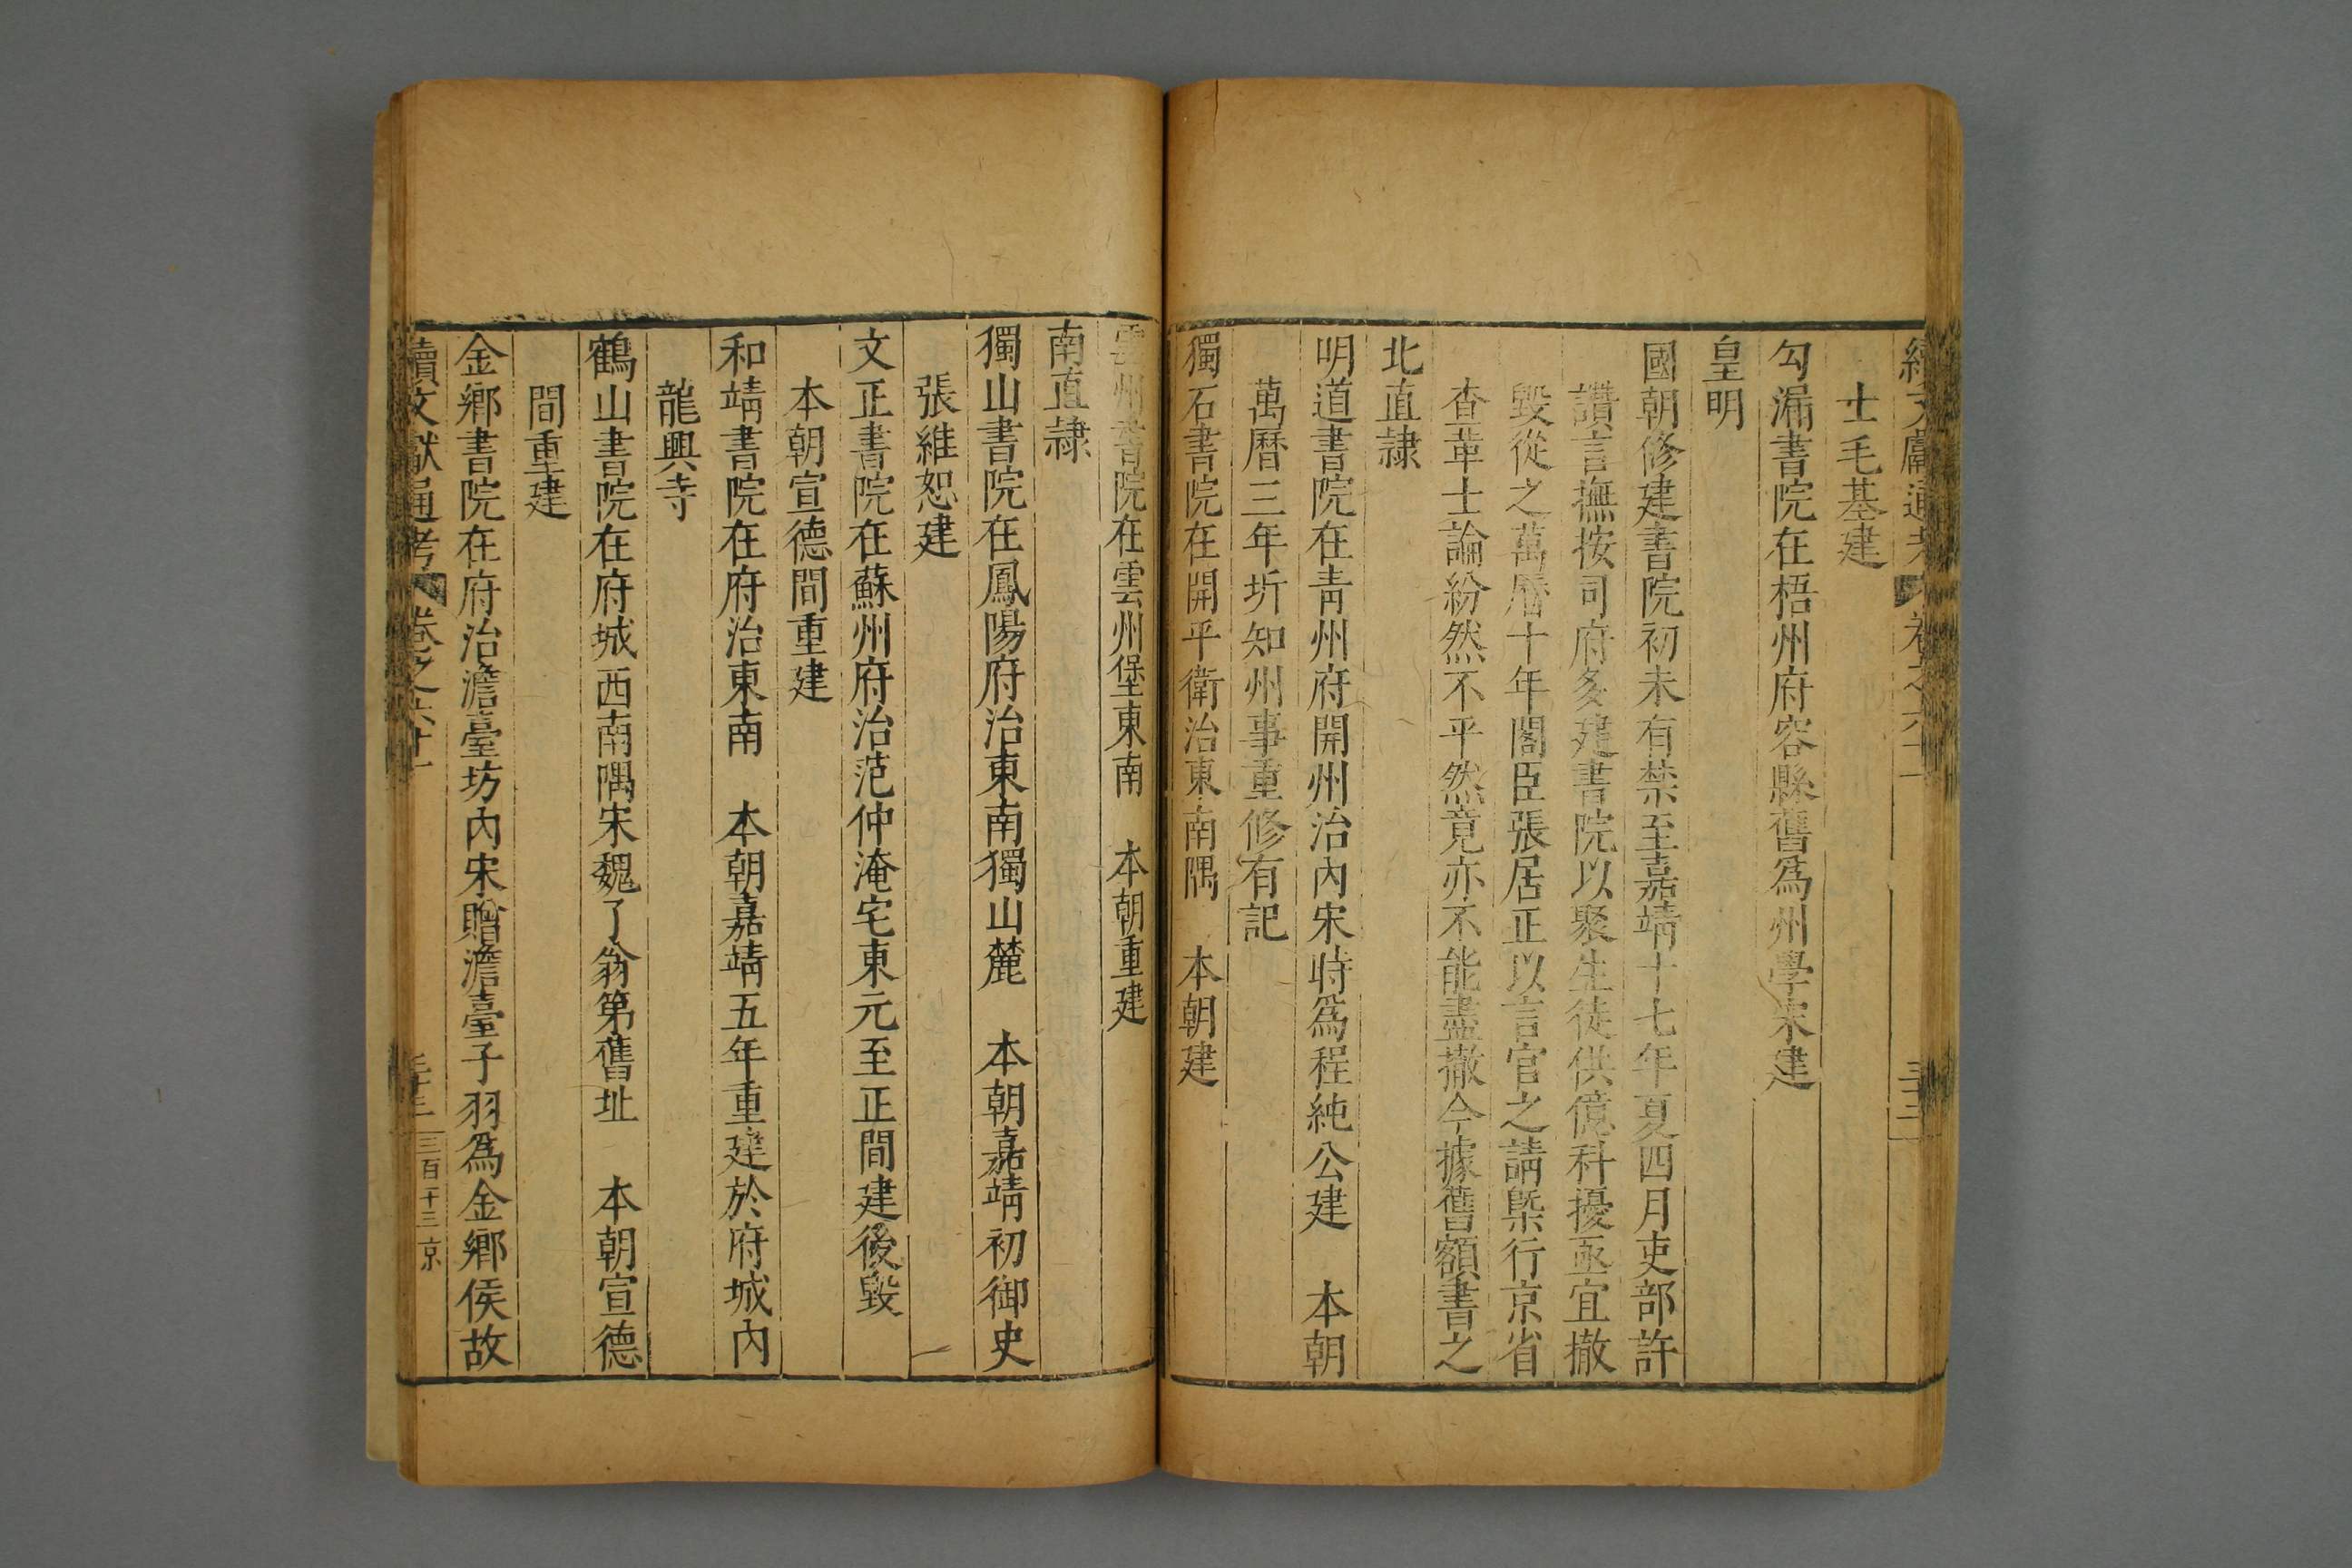 續文獻通考 卷之六十一 三十二
士毛基建
勾漏書院在梧州府容縣舊爲州學宋建
皇明
國朝修建書院初未有禁至嘉靖十七年夏四月吏部許
讚言撫按司府多建書院以聚生徒供億科擾亟宜撤
毀從之萬曆十年閣臣張居正以言官之請槩行京省
查革士論紛然不平然竟亦不能盡撤今據舊額書之
北直隸
明道書院在青州府開州治內宋時爲程純公建 本朝
萬曆三年圻知州事重修有記
獨石書院在開平衛治東南隅 本朝建
雲州書院在雲州堡東南 本朝重建
南直隸
獨山書院在鳳陽府治東南獨山麓 本朝嘉靖初御史
張維恕建
文正書院在蘇州府治范仲淹宅東元至正間建後毀
本朝宣德間重建
和靖書院在府治東南 本朝嘉靖五年重建於府城內
龍興寺
鶴山書院在府城西南隅宋魏了翁第舊址 本朝宣德
間重建
金鄉書院在府治澹臺坊內宋贈澹臺子羽爲金鄉侯故
續文獻通考 卷之六十一 三百十三 京